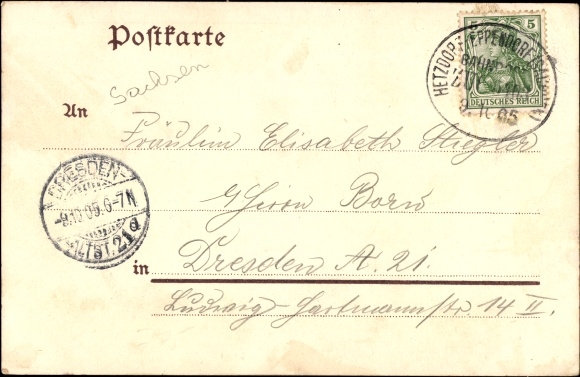 Postkarte
5
DEUTSCHES REICH
HETZDORF-EPPENDORF
BAHNPOST
05
Sachsen
An
Fräulein Elisabeth Stiegler
b/Herrn Born
DRESDEN-
-9.10.05.6-7N
ALTST. 21 d
in Dresden A. 21.
Ludwig-Hartmannstr 14 II.